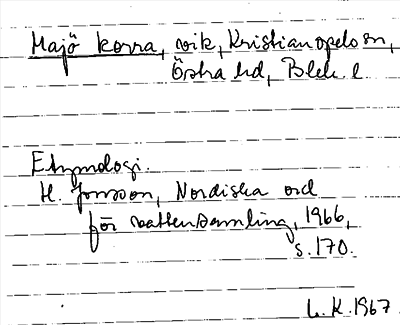 Majö korra, vik, Kristianopels sn,
Östra hd, Blek. l.
Etymologi.
H. Jonsson, Nordiska ord
för vattensamling, 1966,
s. 170.
L. K. 1967